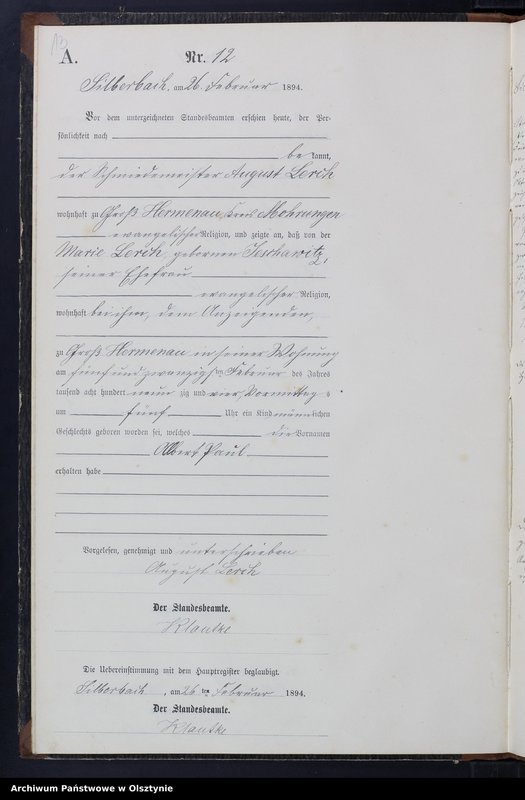 13
A.
Nr. 12
Silberbach, am 26. Februar 1894.
Vor dem unterzeichneten Standesbeamten erschien heute, der Per-
sönlichkeit nach
be kannt,
der Schmiedemeister August Lerch
wohnhaft zu Groß Hermenau, Kreis Mohrungen
evangelischer Religion, und zeigte an, daß von der
Marie Lerch gebornen Jeschawitz,
seiner Ehefrau
evangelischer Religion,
wohnhaft bei ihm, dem Anzeigenden,
zu Groß Hermenau in seiner Wohnung
am fünf und zwanzigsten Februar des Jahres
tausend acht hundert neun zig und vier, Vormittags
um fünf Uhr ein Kind männlichen
Geschlechts geboren worden sei, welches die Vornamen
Albert Paul
erhalten habe
Vorgelesen, genehmigt und unterschrieben
August Lerch
Der Standesbeamte.
Klautke
Die Uebereinstimmung mit dem Hauptregister beglaubigt.
Silberbach, am 26 ten Februar 1894.
Der Standesbeamte.
Klautke
Archiwum Państwowe w Olsztynie